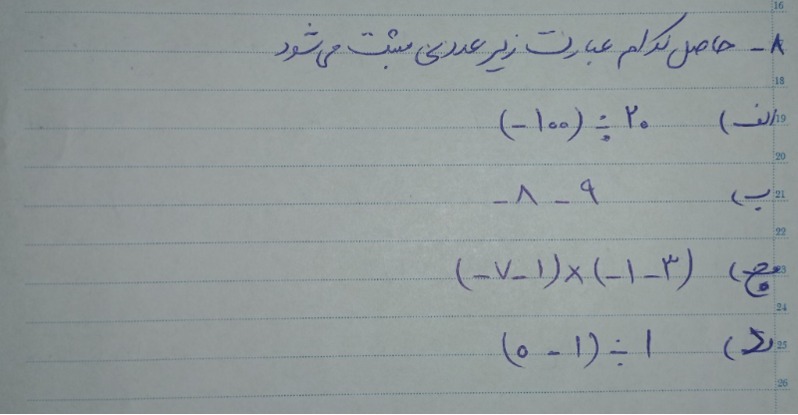 ۸- حاصل کدام عبارت زیر عددی مثبت می‌شود
الف) (-۱۰۰) ÷ ۲۰
ب) -۸ - ۹
ج) (-۷-۱)×(-۱-۳)
د) (۰ - ۱) ÷ ۱
16
18
19
20
21
22
23
24
25
26